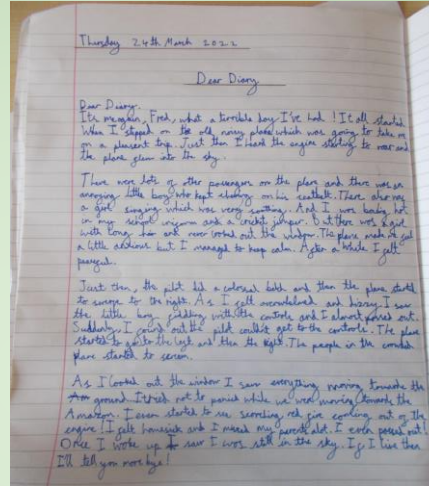 Thursday 24th March 2022
Dear Diary
Dear Diary.
Its me again, Fred, what a terrible day I've had! It all started
When I stepped on the old noisy plane which was going to take me
on a pleasent trip. Just then I heard the engine starting to roar and
the plane flew into the sky.
There were lots of other passengers on the plane and there was an
annoying little boy who kept on his seatbelt. There also was
a girl singing which was very soothing. And I was boiling hot
in my school uniform and a cricket jumper. But there was a girl
with long hair and never looked out the window. The plane made me feel
a little anxious but I managed to keep calm. After a while I felt
peaceful.
Just then, the pilot did a colossal and then the plane started
to swerve to the right. As I felt overwhelmed and dizzy I saw
the little boy fiddling with the controls and I almost passed out.
Suddenly I found out the pilot couldn't get to the controls. The plane
started to go to the left and then the right. The people in the crowded
plane started to scream.
As I looked out the window I saw everything moving towards the
ground. I tried not to panic while we were moving towards the
Amazon. I even started to see scorching red fire coming out of the
engine! I felt homesick and I missed my parents alot. I even passed out!
Once I woke up I saw I was still in the sky. If I live then
I'll tell you more bye!